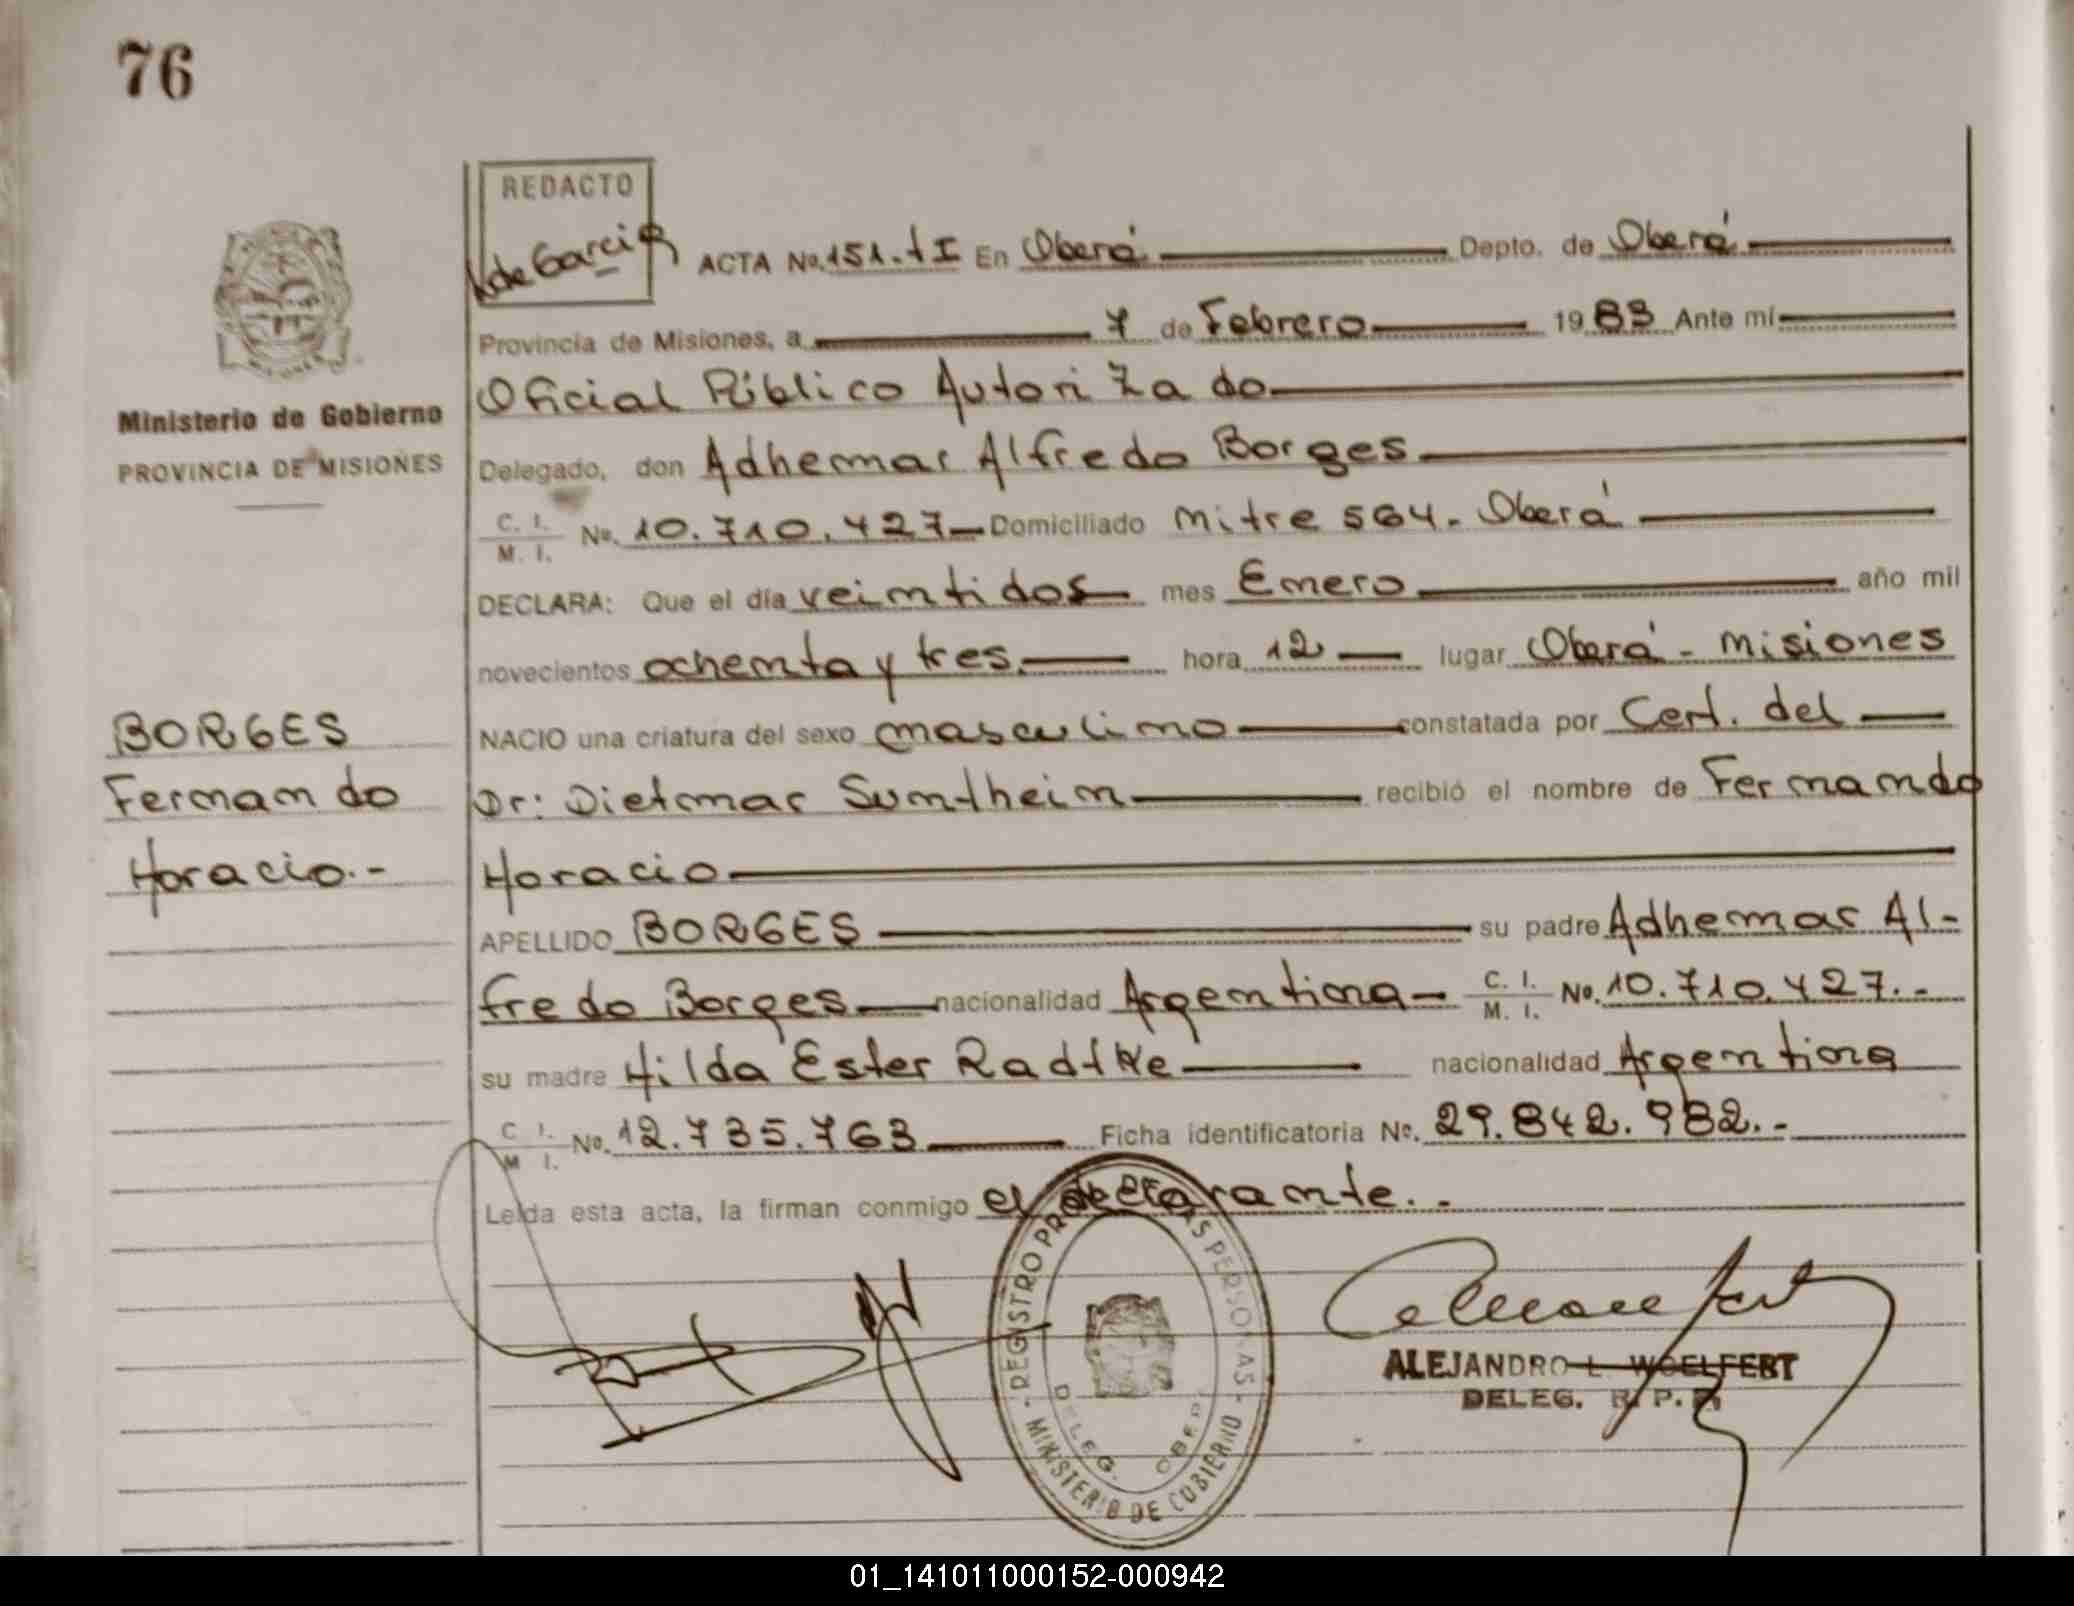 76
REDACTO
de Garcia
ACTA No. 151. tI En Oberá Depto. de Oberá
Provincia de Misiones, a 7 de Febrero 1983 Ante mí
Oficial Público Autorizado
Ministerio de Gobierno
PROVINCIA DE MISIONES
Delegado, don Adhemar Alfredo Borges
C. I.
M. I. No. 10.710.427 Domiciliado Mitre 564. Oberá
DECLARA: Que el día veintidos mes Enero año mil
novecientos ochenta y tres. hora 12 lugar Oberá - Misiones
BORGES
Fernando
Horacio.-
NACIO una criatura del sexo masculino constatada por Cert. del
Dr: Dietmar Suntheim recibió el nombre de Fernando
Horacio
APELLIDO BORGES su padre Adhemar Al-
fredo Borges nacionalidad Argentina C. I.
M. I. No. 10.710.427.-
su madre Hilda Ester Radtke nacionalidad Argentina
C. I.
M. I. No. 12.735.763 Ficha identificatoria No. 29.842.982.-
Leída esta acta, la firman conmigo el declarante.-
REGISTRO AS PERSONAS
MINISTERIO DE GOBIERNO
DELEG. OBERA
ALEJANDRO L. WOELFERT
DELEG. R. P. P.
01_141011000152-000942